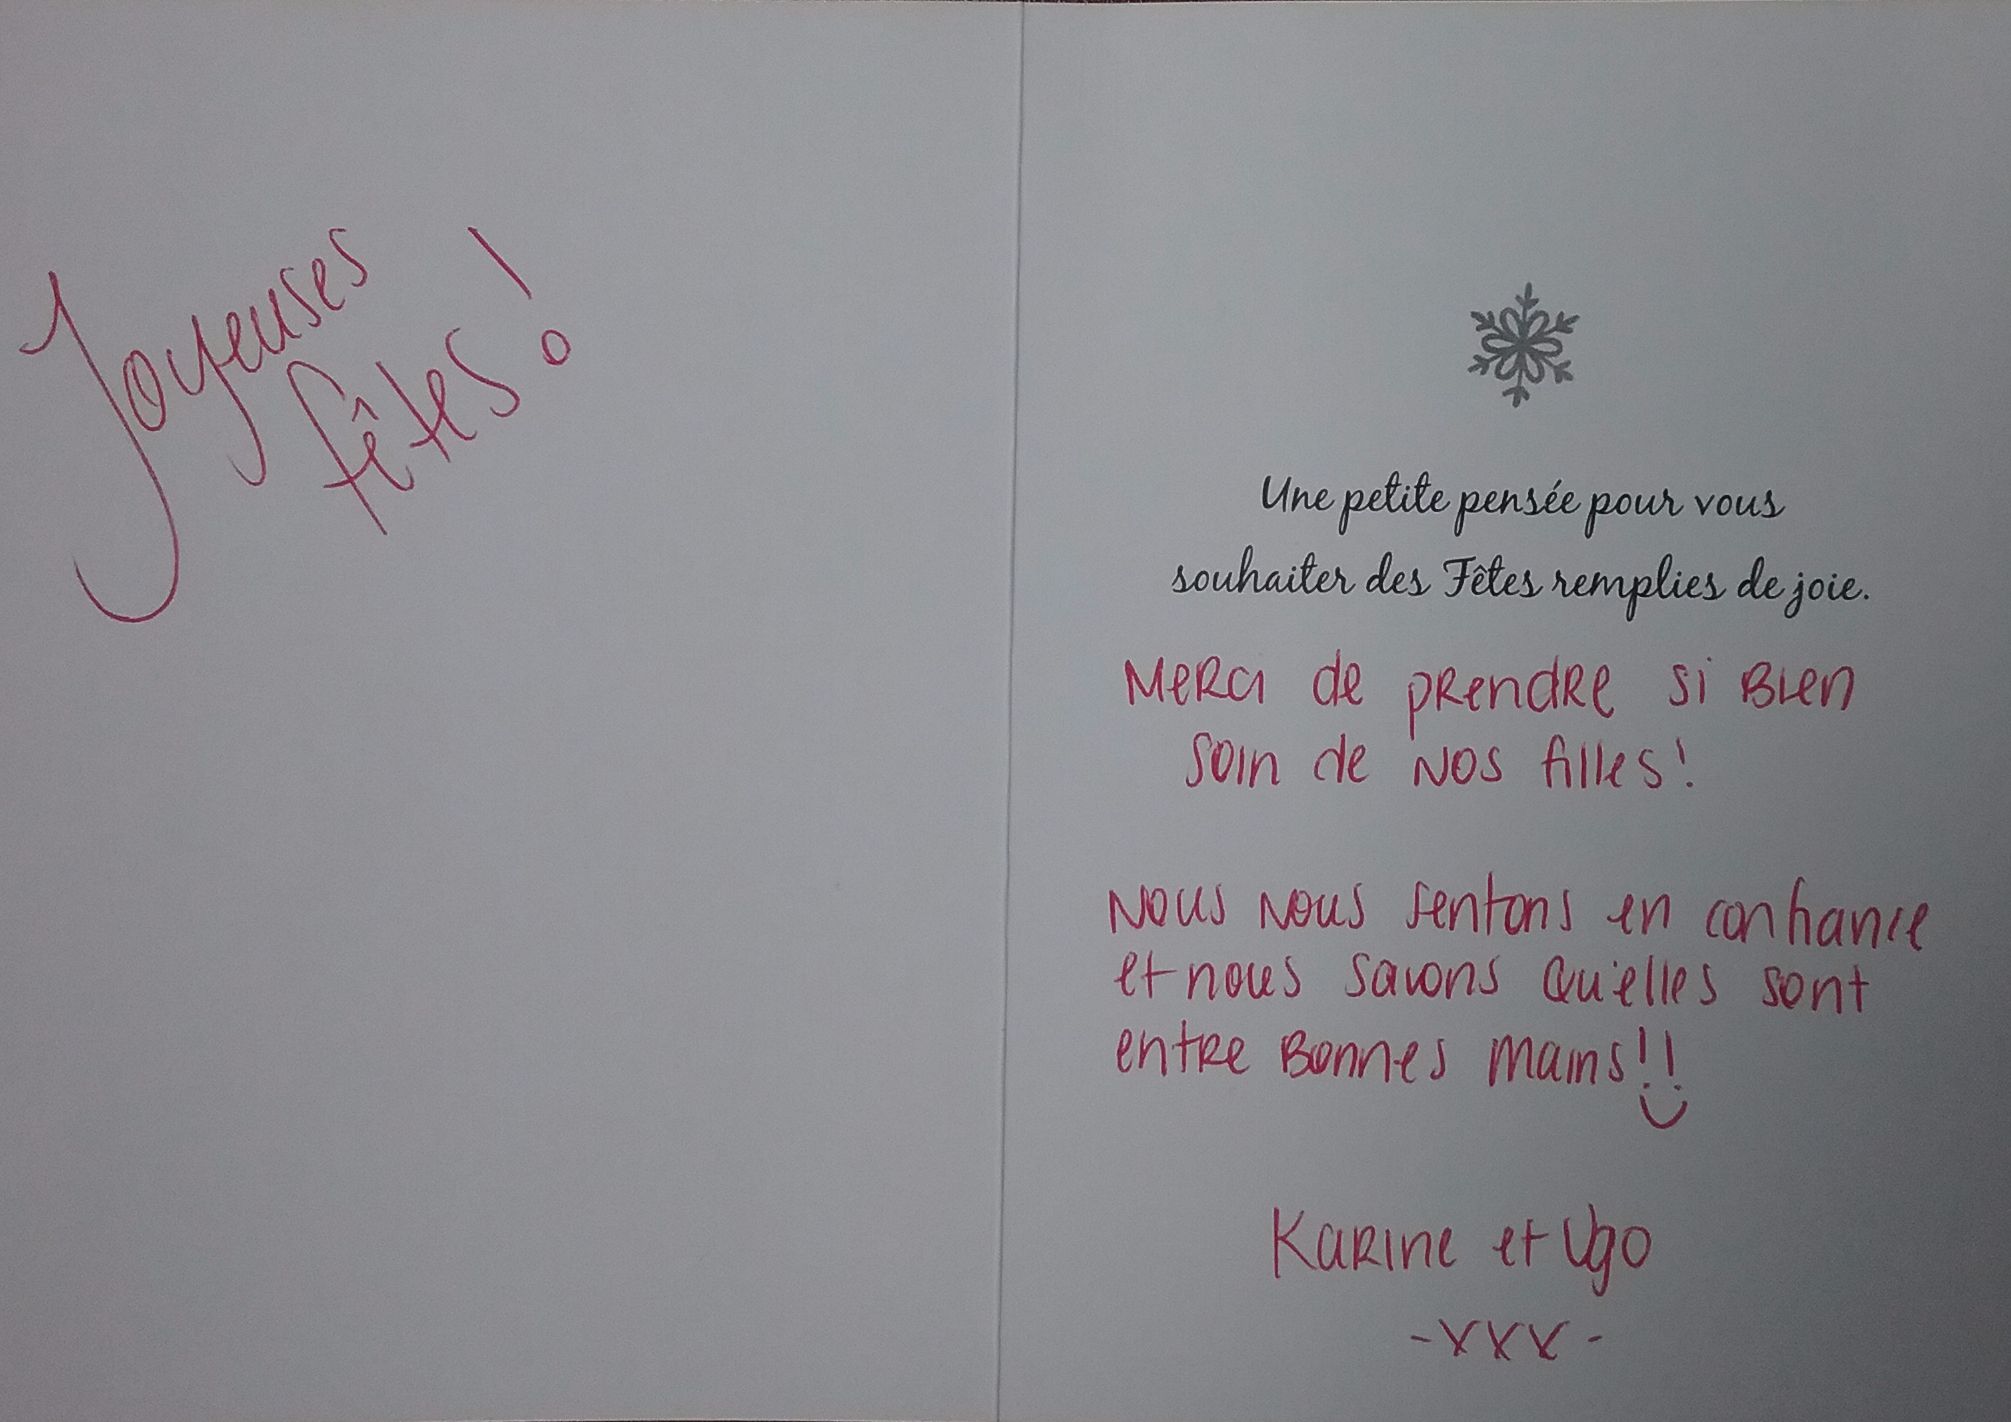 Joyeuses
fêtes!
Une petite pensée pour vous
souhaiter des Fêtes remplies de joie.
Merci de prendre si Bien
soin de Nos filles!
Nous Nous sentons en confiance
et nous savons Qu'elles sont
entre Bonnes mains!!
Karine et Ugo
-xxx-